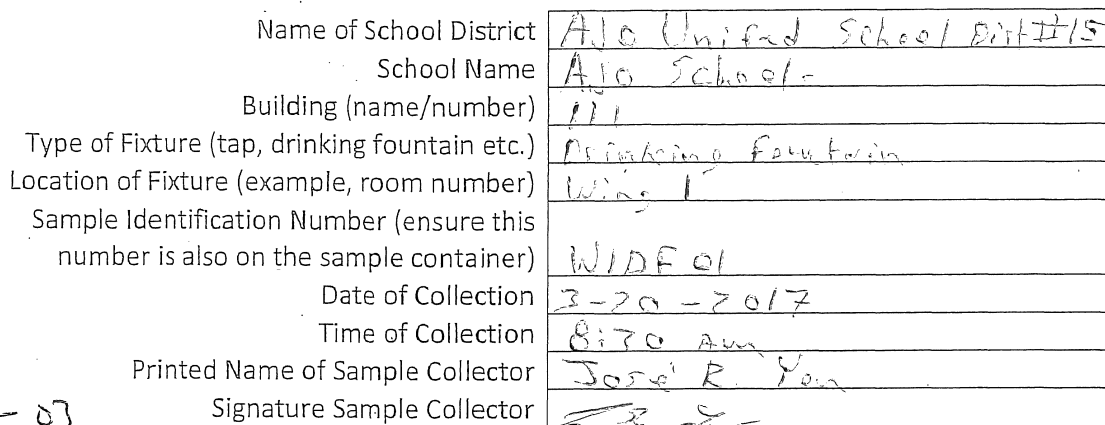 Name of School District AJo Unifad School Dist #15
School Name AJo School-
Building (name/number) 111
Type of Fixture (tap, drinking fountain etc.) Drinking fountain
Location of Fixture (example, room number) Wing 1
Sample Identification Number (ensure this
number is also on the sample container) W1DF01
Date of Collection 3-20-2017
Time of Collection 8:30 Am
Printed Name of Sample Collector José R.
Signature Sample Collector
- 03